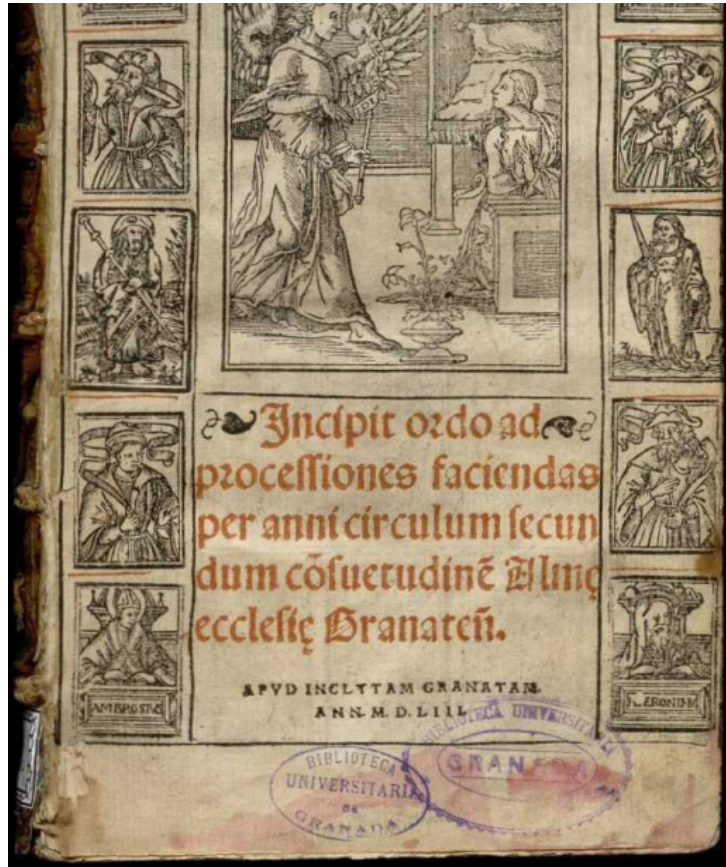 Incipit ordo ad
processiones faciendas
per anni circulum secun
dum cõsuetudinẽ Almę
ecclesię Granateñ.
APVD INCLYTAM GRANATAM.
ANN. M. D. LIII.
AMBROSIVS
BIBLIOTECA UNIVERSITARIA
GRANADA
BIBLIOTECA
UNIVERSITARIA
DE
GRANADA